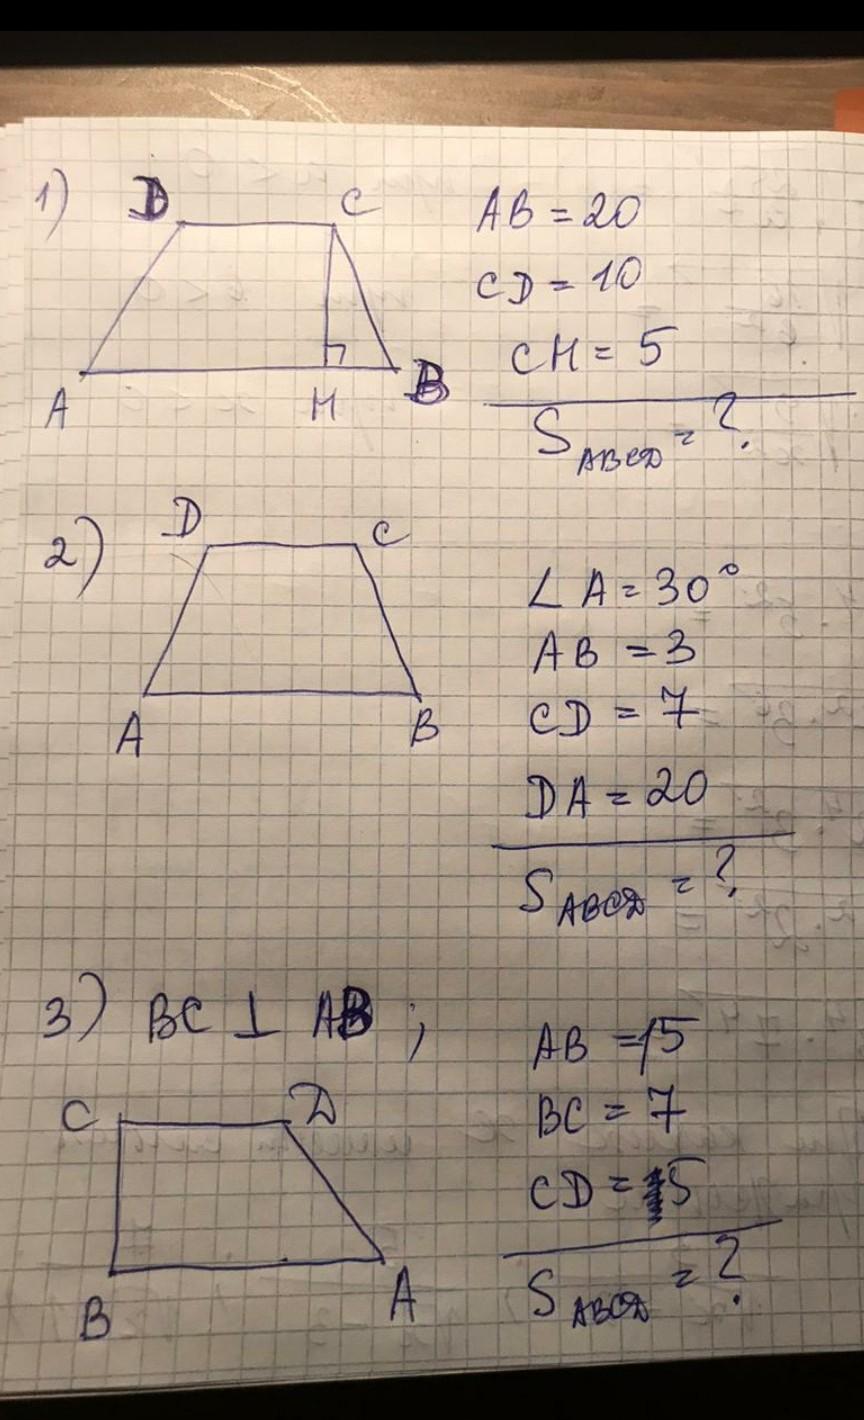 1) D C
A H B
AB = 20
CD = 10
CH = 5
S ABCD = ?
2) D C
A B
∠A = 30°
AB = 3
CD = 7
DA = 20
S ABCD = ?
3) BC ⊥ AB ;
C D
B A
AB = 15
BC = 7
CD = 5
S ABCD = ?